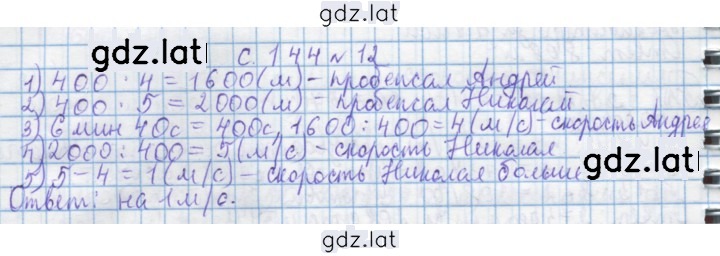 gdz.lat
с. 144 № 12
1) 400 · 4 = 1600 (м) - пробежал Андрей
2) 400 · 5 = 2000 (м) - пробежал Николай.
3) 6 мин 40с = 400с, 1600 : 400 = 4 (м/с) - скорость Андрея
4) 2000 : 400 = 5 (м/с) - скорость Николая
5) 5 - 4 = 1 (м/с) - скорость Николая больше
gdz.lat
Ответ: на 1 м/с.
gdz.lat